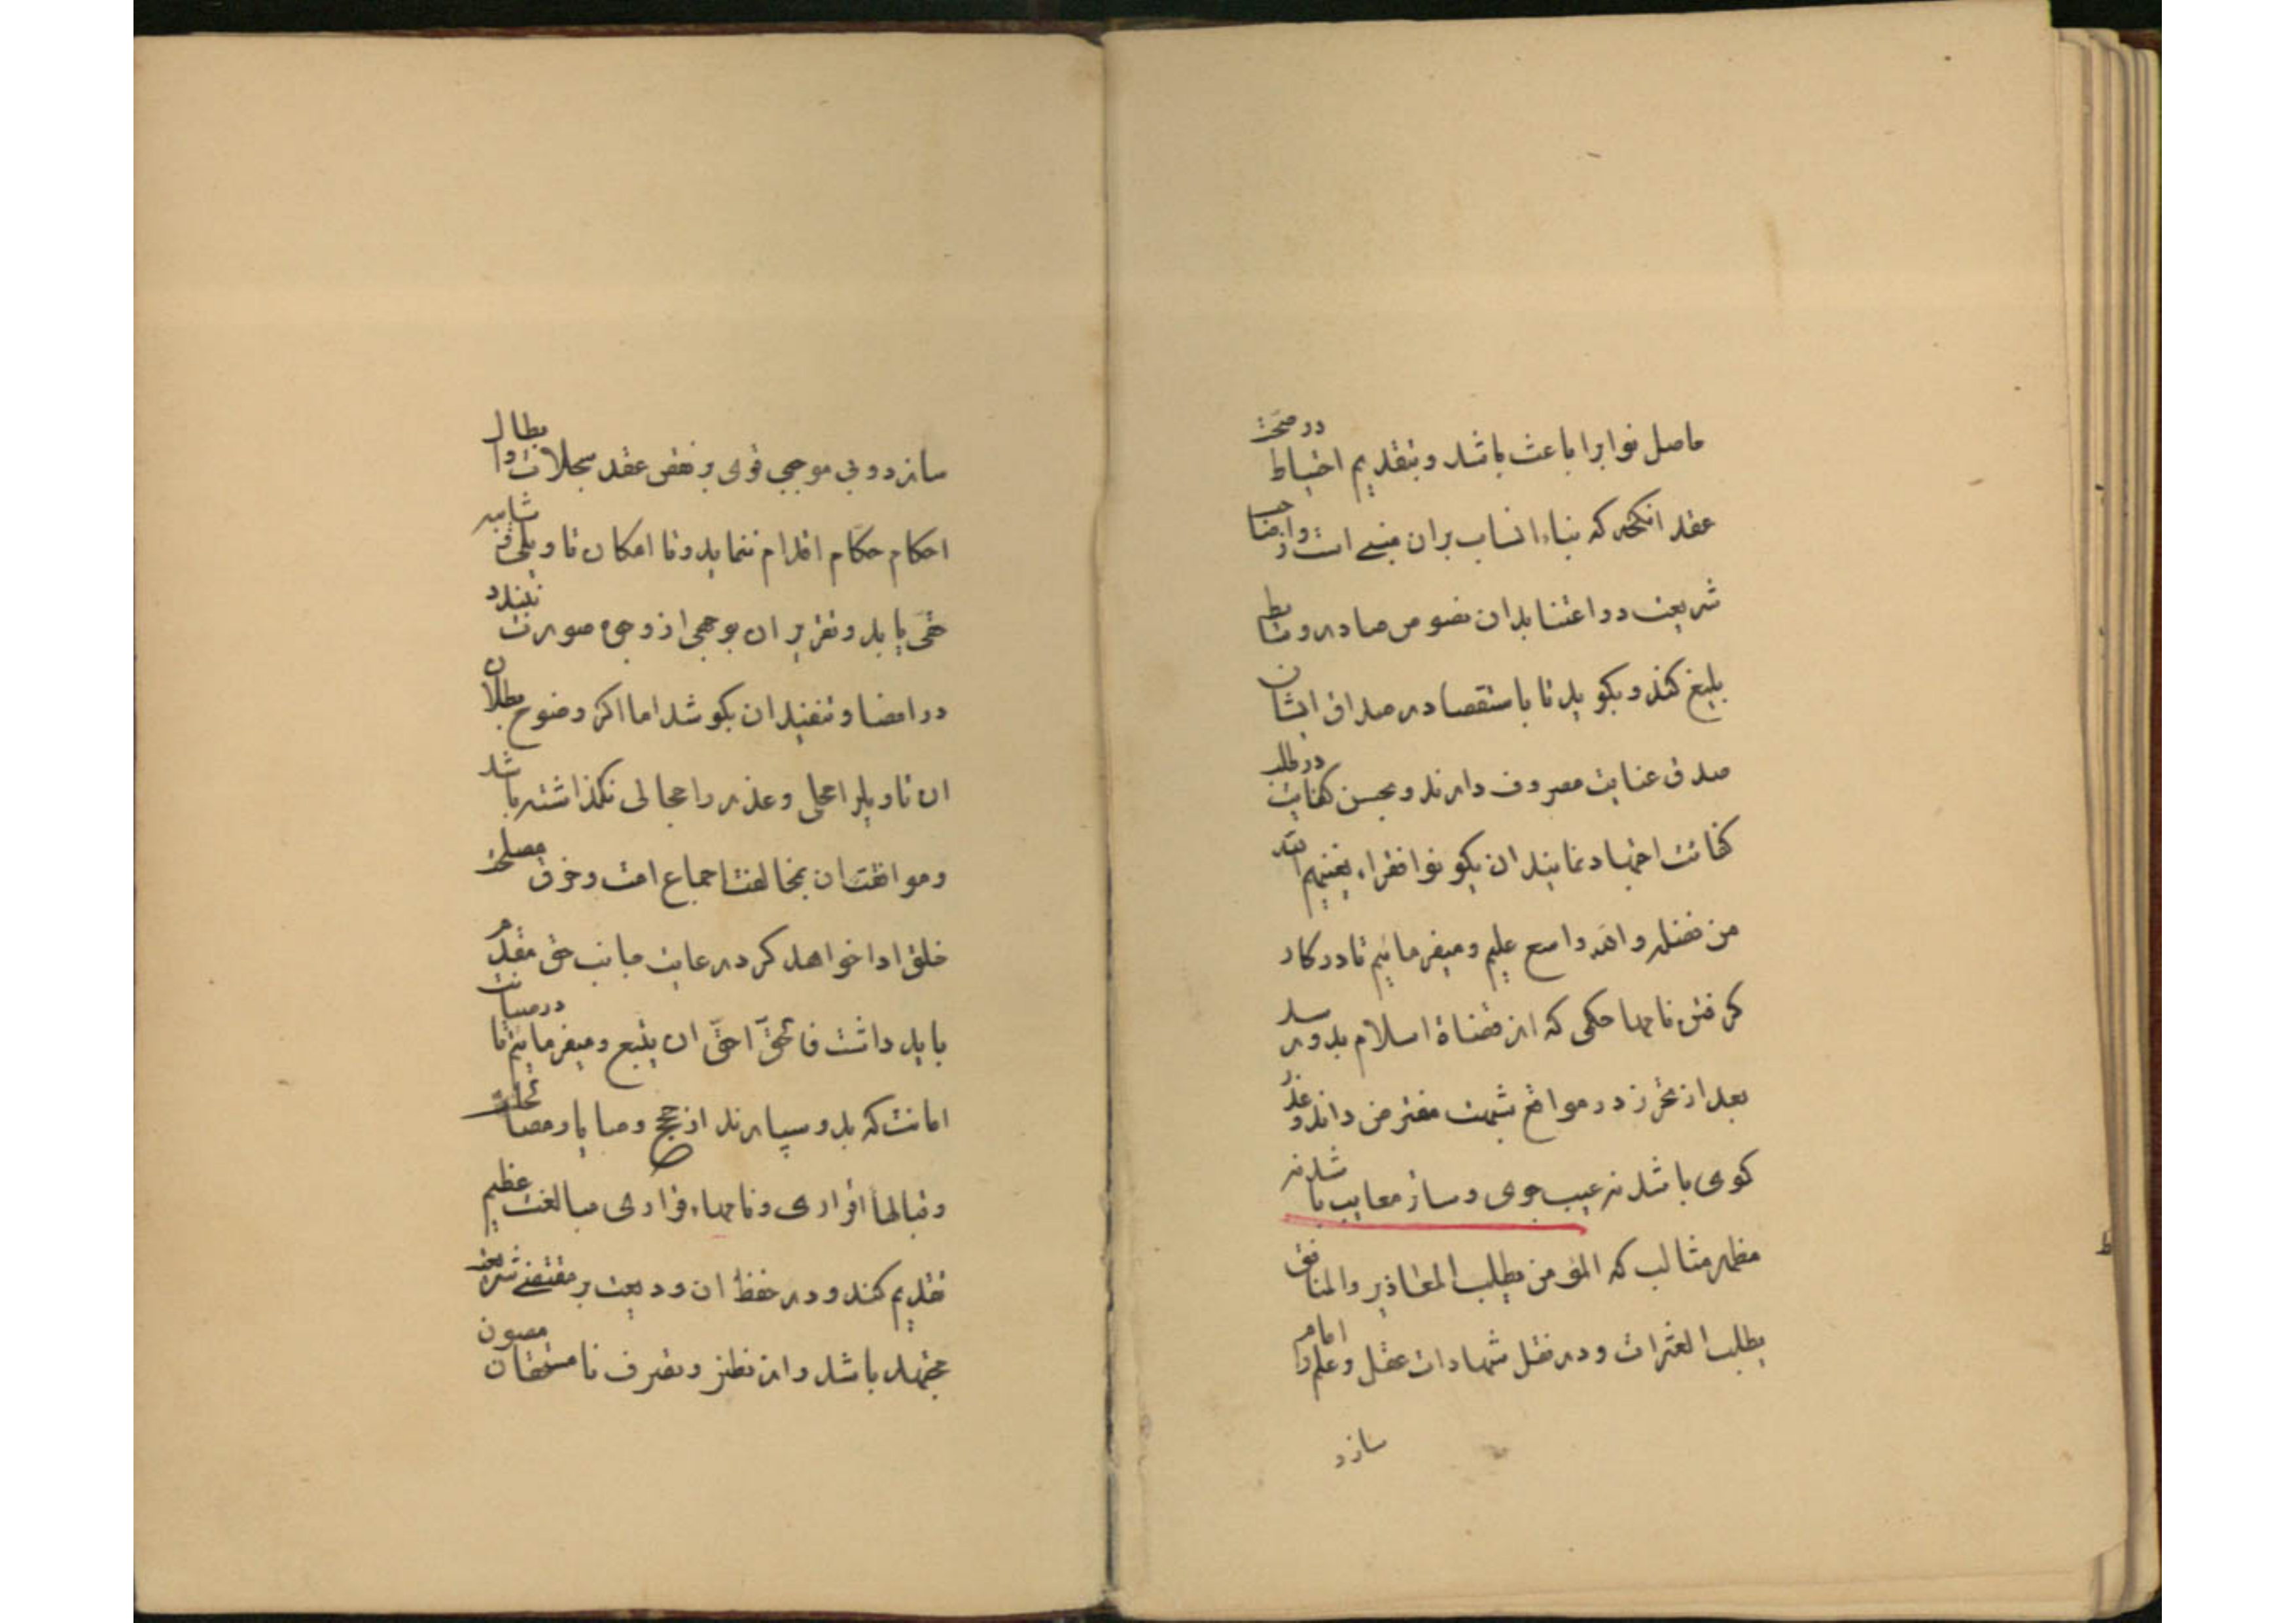 حاصل نوابرا باعث باشد و بتقدیم احتیاط در صحت
عقد انکحه که بناء انساب بران مبنی است و از واجبات
شریعت دو اعتنا بدان نصوص صادر و
بلیغ کند و بکوید تا باستقصا در صداق ایشان
صدق عنایت مصروف دارند و بحسن کفایت در طلب
کفائت اجتهاد نمایند ان یکونوا فقراء یغنیهم الله
من فضله والله واسع علیم و میفرمائیم تا در کار
کرفتن نامها حکمی که از قضاة اسلام بدو رسد
بعد از تحرز در مواقع شبهت مفترض داند و عذر
کوی باشد نه عیب جوی و ساتر معایب باشد نه
مظهر مثالب که المؤمن یطلب المعاذیر والمنافق
یطلب العثرات و در نقل شهادات عقل و علم را امام
سازد
سازد و بی موجبی قوی بر نقض عقد سجلات و ابطال
احکام حکام اقدام ننماید و تا امکان تاویلی و شایبه
حقی یابد و تقریر ان بوجهی از وجوه صورت بندد
در امضا و تنفیذ ان بکوشد اما اکر وضوح بطلان
ان تاویلرا محلی و عذر را مجالی نکذاشته باشد
و موافقت ان بمخالفت اجماع امت و خرق مصلحت
خلق ادا خواهد کرد رعایت جانب حق مقدم
باید داشت فالحق احق ان یتبع و میفرمائیم تا در صیانت
امانت که بدو سپارند از حجج و وصایا و
و قبالها اقراری و نامهاء قراری مبالغت عظیم
تقدیم کند و در حفظ ان ودیعت بر مقتضی شریعت
مجتهد باشد و از نظر و تصرف نا مستحقان مصون